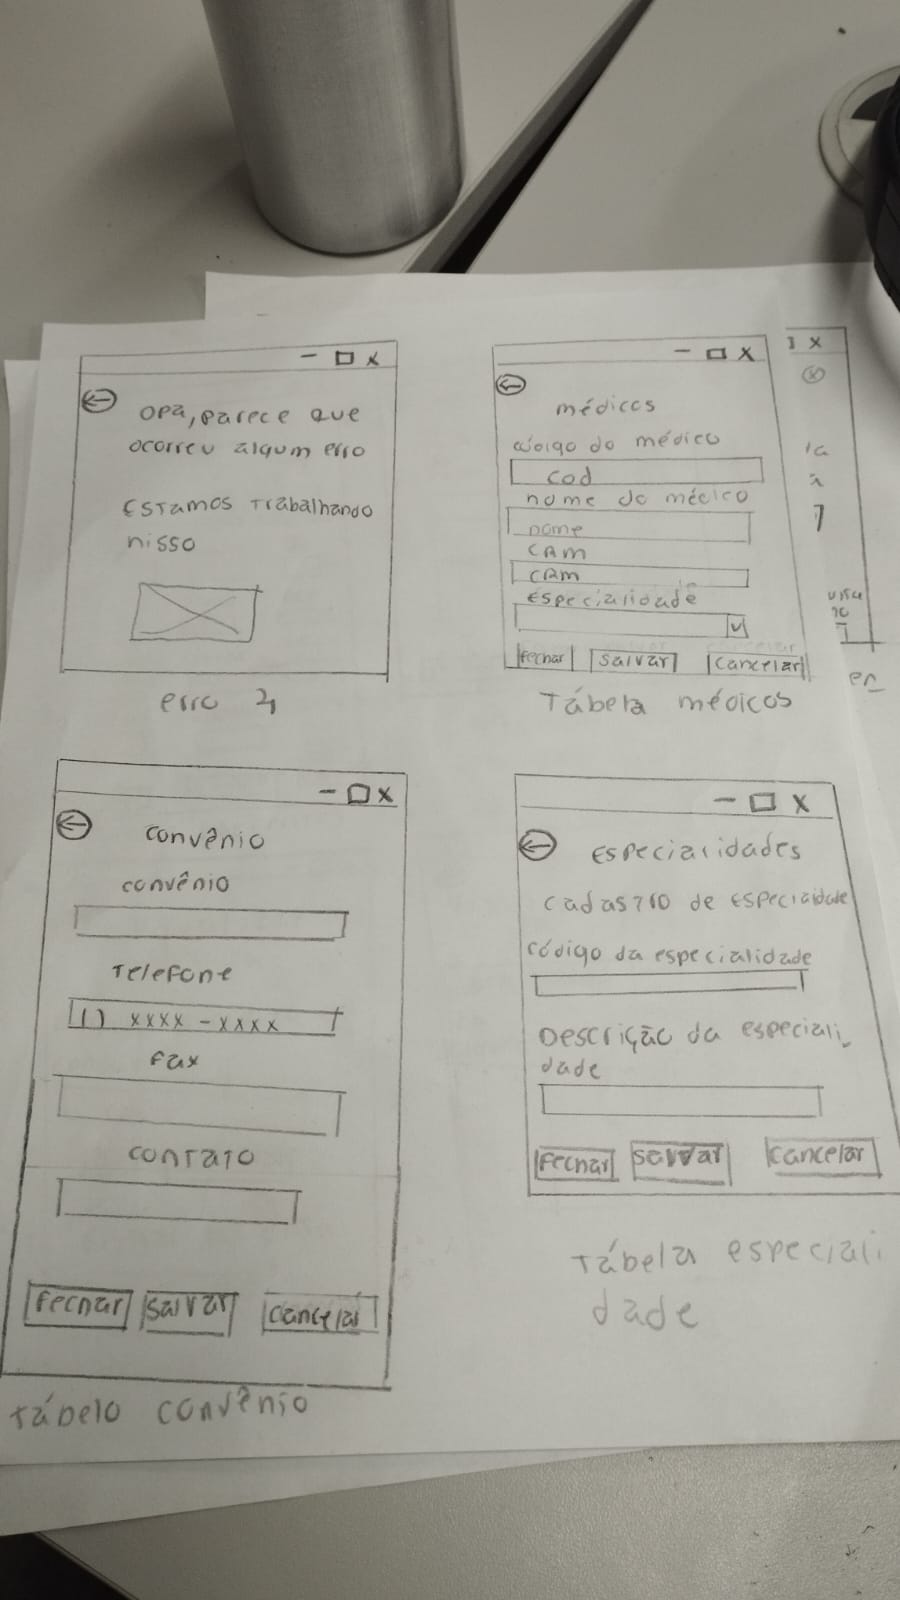 opa, parece que
ocorreu algum erro
Estamos trabalhando
nisso
erro 4
médicos
código do médico
cod
nome do médico
nome
CRM
CRM
Especialidade
fechar salvar cancelar
Tábela médicos
convênio
convênio
Telefone
( ) xxxx - xxxx
fax
contato
fechar salvar cancelar
tábelo convênio
Especialidades
cadastro de especialidade
código da especialidade
Descrição da especiali_
dade
fechar salvar cancelar
tábela especiali
dade